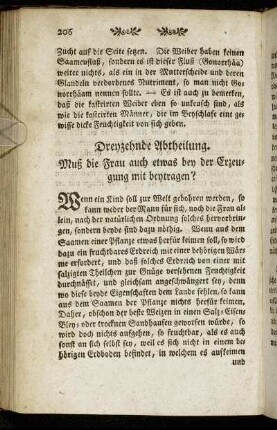 206
Zucht auf die Seite setzen. Die Weiber haben keinen
Saamenfluß, sondern es ist dieser Fluß (Gonorrhäa)
weiter nichts, als ein in der Mutterscheide und deren
Glandeln verdorbenes Nutriment, so man nicht Go-
norrhäam nennen sollte. — Es ist auch zu bemerken,
daß die kastrirten Weiber eben so unkeusch sind, als
wie die kastrirten Männer, die im Beyschlafe eine ge-
wisse dicke Feuchtigkeit von sich geben.
Dreyzehnde Abtheilung.
Muß die Frau auch etwas bey der Erzeu-
gung mit beytragen?
Wenn ein Kind soll zur Welt gebohren werden, so
kann weder der Mann für sich, noch die Frau al-
lein, nach der natürlichen Ordnung solches hervorbrin-
gen, sondern beyde sind dazu nöthig. Wenn aus dem
Saamen einer Pflanze etwas herfür keimen soll, so wird
dazu ein fruchtbares Erdreich mit einer behörigen Wär-
me erfordert, und daß solches Erdreich von einer mit
salzigten Theilchen zur Gnüge versehenen Feuchtigkeit
durchnässet, und gleichsam angeschwängert sey, denn
wo diese beyde Eigenschaften dem Lande fehlen, so kann
aus dem Saamen der Pflanze nichts herfür keimen.
Daher, obschon der beste Weizen in einen Salz- Eisen-
Bley- oder trocknen Sandhaufen geworfen würde, so
wird doch nichts aufgehen, so fruchtbar, als es auch
sonst an sich selbst sey, weil es sich nicht in einem be-
hörigen Erdboden befindet, in welchem es aufkeimen
und